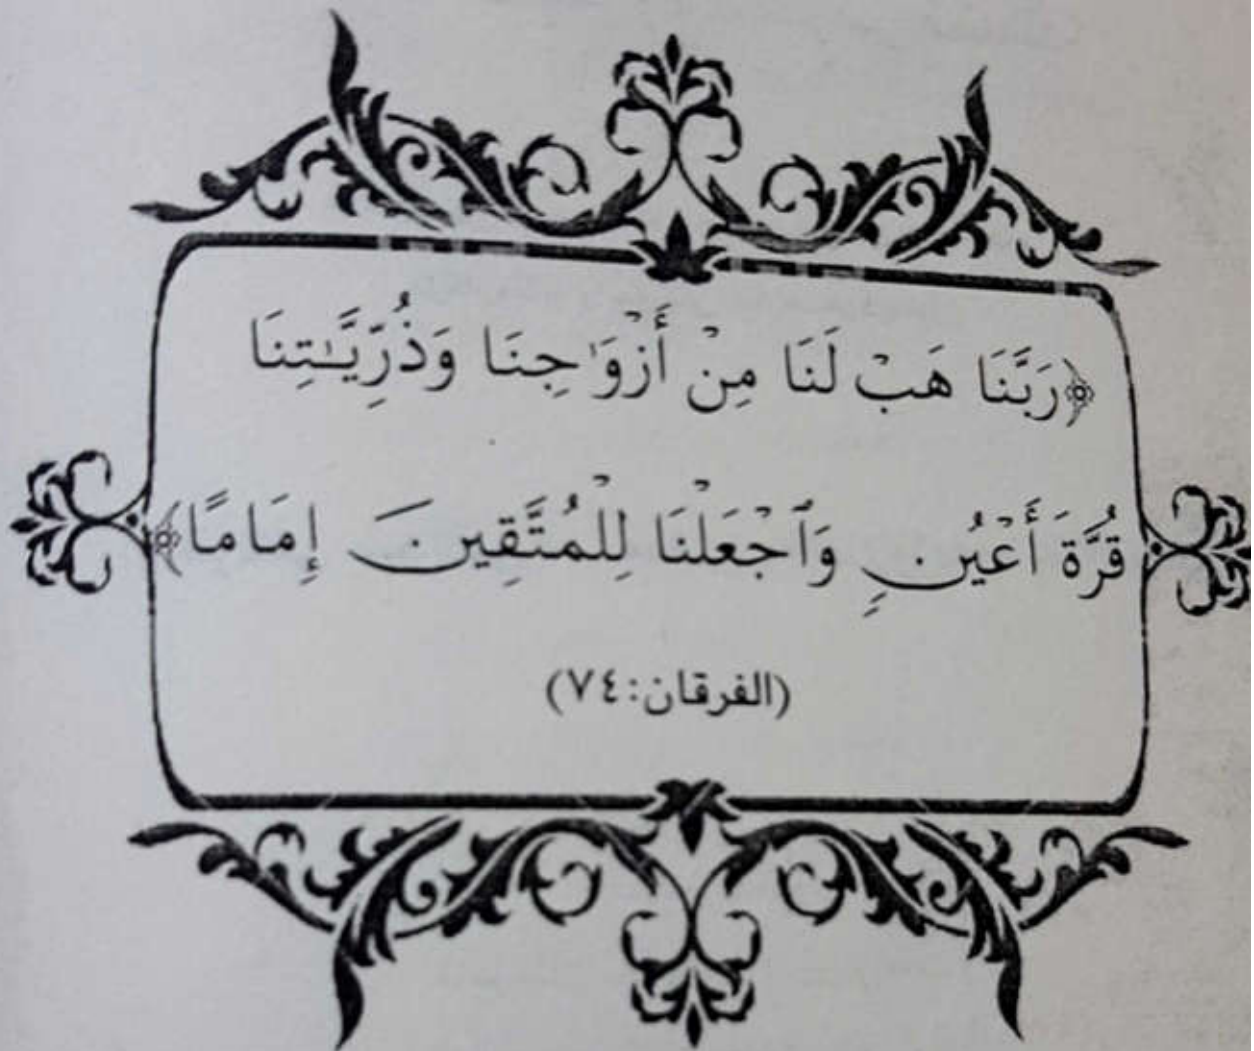 ﴿رَبَّنَا هَبۡ لَنَا مِنۡ أَزۡوَٰجِنَا وَذُرِّيَّـٰتِنَا
قُرَّةَ أَعۡيُنٖ وَٱجۡعَلۡنَا لِلۡمُتَّقِينَ إِمَامًا﴾
(الفرقان:٧٤)